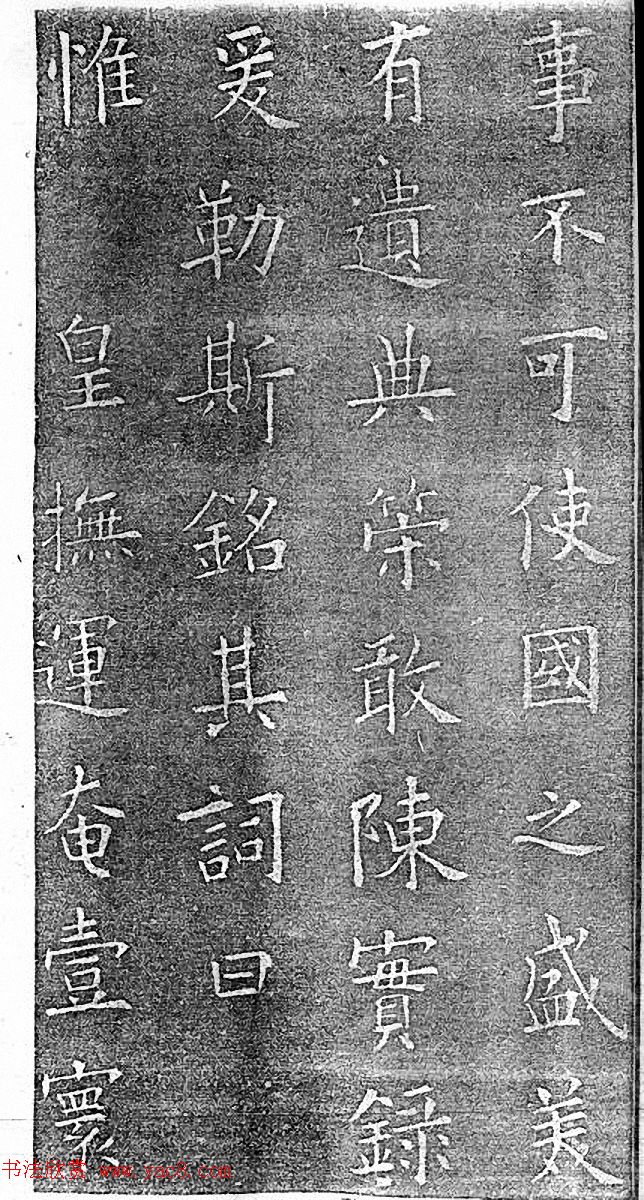 事不可使國之盛美
有遺典策敢陳實錄
爰勒斯銘其詞曰
惟皇撫運奄壹寰
书法欣赏 www.yac8.com